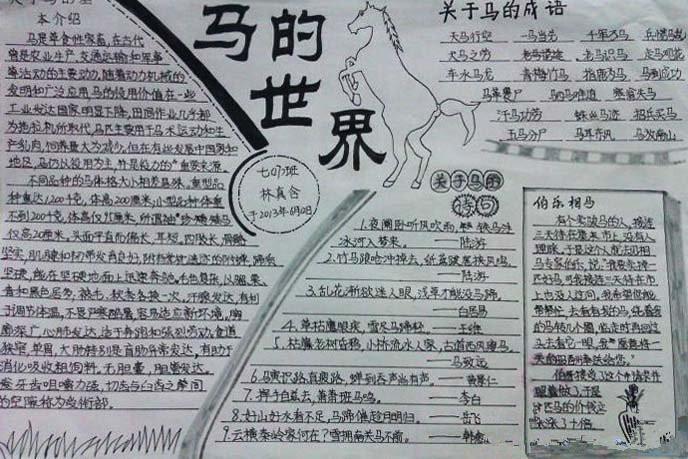 关于马的基
本介绍
马是草食性家畜,在古代
曾是农业生产、交通运输和军事
等活动的主要动力,随着动力机械的
发明和广泛应用,马的役用价值在一些
工业发达国家明显下降,田间作业几乎都
为拖拉机所取代,马匹主要用于马术运动和生
产乳肉,饲养量大为减少,但在有些发展中国家和
地区,马仍以役用为主,并是役力的重要来源
不同品种的马体格大小相差悬殊,重型品
种重达1200千克,体高200厘米;小型品种体重
不到200千克,体高仅95厘米,所谓袖珍矮马
仅高20厘米。头面平直而偏长,耳短。四肢长,骨骼
坚实,肌腱和韧带发育良好,附有掌枕遗迹的附蝉,蹄质
坚硬,能在坚硬地面上迅速奔驰。毛色复杂,以骝、栗、
青和黑色居多,被毛、秋季各换一次,汗腺发达,有利
于调节体温,不畏严寒酷暑,容易适应新环境,胸
廓深广,心肺发达,适于奔跑和强烈劳动。食道
狭窄,单胃,大肠特别是盲肠异常发达,有助于
消化吸收粗饲料,无胆囊,胆管发达。
齿牙齿咀嚼力强,切齿与臼齿之间
的空隙称为受衔部。
马的
世
界
七(7)班
林真含
于2013年6月0日
关于马的成语
天马行空 一马当先 千军万马 兵慌马乱
犬马之劳 老马识途 走马观花
车水马龙 青梅竹马 指鹿为马 马到成功
马革裹尸 塞翁失马
汗马功劳 蛛丝马迹 招兵买马
五马分尸 马耳东风 马放南山
关于马的
诗句
1.夜阑卧听风吹雨,铁马冰
冰河入梦来。 ——陆游
2.竹马踉跄冲淖去,纸鸢跋扈挟风鸣。
——陆游
3.乱花渐欲迷人眼,浅草才能没马蹄。
——白居易
4.草枯鹰眼疾,雪尽马蹄轻。 ——王维
5.枯藤老树昏鸦,小桥流水人家,古道西风瘦马。
——马致远
6.马嘶识路真疲路,蝉到吞声尚有声。——黄景仁
7.挥手自兹去,萧萧班马鸣。 ——李白
8.好山好水看不足,马蹄催趁月明归。——岳飞
9.云横秦岭家何在?雪拥南关马不前。——韩愈
伯乐相马
有个卖骏马的人,接连
三天待在集市上,没有人
理睬,于是这个人就去见相
马专家伯乐,说:"我要卖掉一
匹好马,可我接连三天待在市
上也没人过问,我希望您能
帮帮忙,去看看我的马,绕着我
的马转几个圈,临走时再回过
头去看它一眼,我愿意将一
天的
伯乐接受了这个